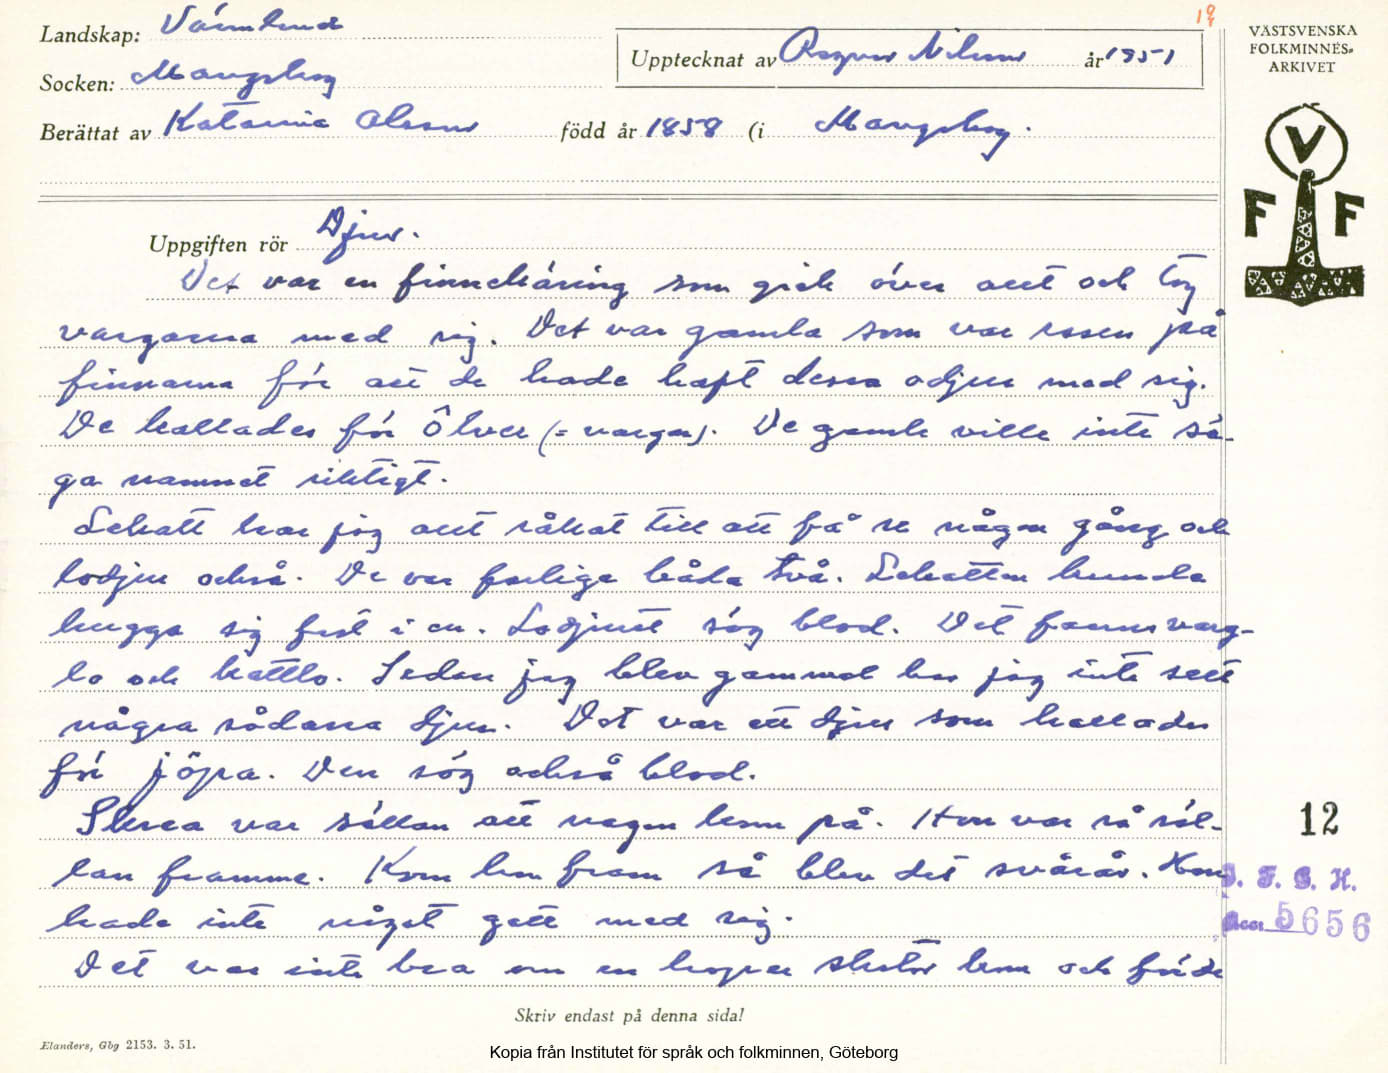 19
Landskap: Värmland
Socken: Mangskog
Upptecknat av Ragnar Nilsson år 1951
Berättat av Katarina Olsson född år 1858 (i Mangskog.
VÄSTSVENSKA
FOLKMINNES-
ARKIVET
V
F F
Uppgiften rör Djur.
Det var en finnekäring som gick över allt och tog
vargarna med sig. Det var gamla som var rosen på
finnarna för att de hade haft dessa odjur med sig.
De kallades för Ôlver (= vargar). De gamle ville inte sä-
ga namnet riktigt.
Lekatt har jag allt råkat till att få se någon gång och
lodjur också. De var farliga båda två. Lekatten kunde
hugga sig fast i en. Lodjuret sög blod. Det fanns varg-
lo och kattlo. Sedan jag blev gammal har jag inte sett
några sådana djur. Det var ett djur som kallades
för jöpa. Den sög också blod.
Skrea var sällan att nagon kom på. Hon var så säl-
lan framme. Kom hon fram så blev det svårår. Hon
hade inte något gott med sig.
Det var inte bra om en hoper skator kom och förde
12
I. F. G. H.
Acc. 5656
Skriv endast på denna sida!
Elanders, Gbg 2153. 3. 51.
Kopia från Institutet för språk och folkminnen, Göteborg